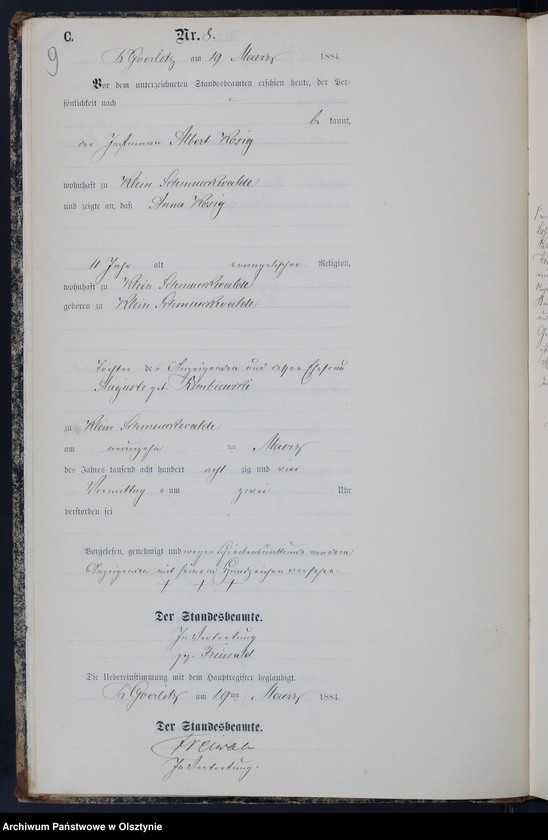 C.
Nr. 8.
9
Kl Goerlitz am 19 Maerz 1884.
Vor dem unterzeichneten Standesbeamten erschien heute, der Per-
sönlichkeit nach
be kannt,
der Instmann Albert Kosig
wohnhaft zu Klein Schmueckwalde
und zeigte an, daß Anna Kosig
11 Jahr alt evangelischer Religion,
wohnhaft zu Klein Schmueckwalde
geboren zu Klein Schmueckwalde
Tochter des Anzeigenden und dessen Ehefrau
Auguste geb.
zu Klein Schmueckwalde
am neunzehn ten Maerz
des Jahres tausend acht hundert acht zig und vier
Vormittag s um zwei Uhr
verstorben sei
Vorgelesen, genehmigt und wegen Schreibensunkunde von dem
Anzeigenden mit seinem Handzeichen versehen.
+ + +
Der Standesbeamte.
In Vertretung
gez. Freiwald
Die Uebereinstimmung mit dem Hauptregister beglaubigt.
Kl Goerlitz am 19ten Maerz 1884.
Der Standesbeamte.
Freiwald
In Vertretung.
Archiwum Państwowe w Olsztynie